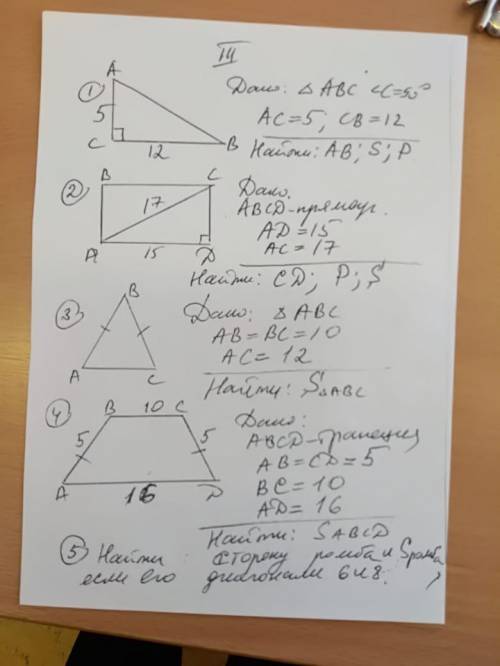 III
① A
5
C 12 B
Дано: △ ABC ∠C=90°
AC=5; CB=12
Найти: AB; S; P
② B C
17
A 15 D
Дано.
ABCD-прямоуг.
AD=15
AC=17
Найти: CD; P; S
③ B
A C
Дано: △ ABC
AB=BC=10
AC=12
Найти: S△ABC
④ B 10 C
5 5
A 16 D
Дано:
ABCD-трапеция
AB=CD=5
BC=10
AD=16
Найти: SABCD
⑤ Найти сторону ромба и Sромба,
если его диагонали 6 и 8.